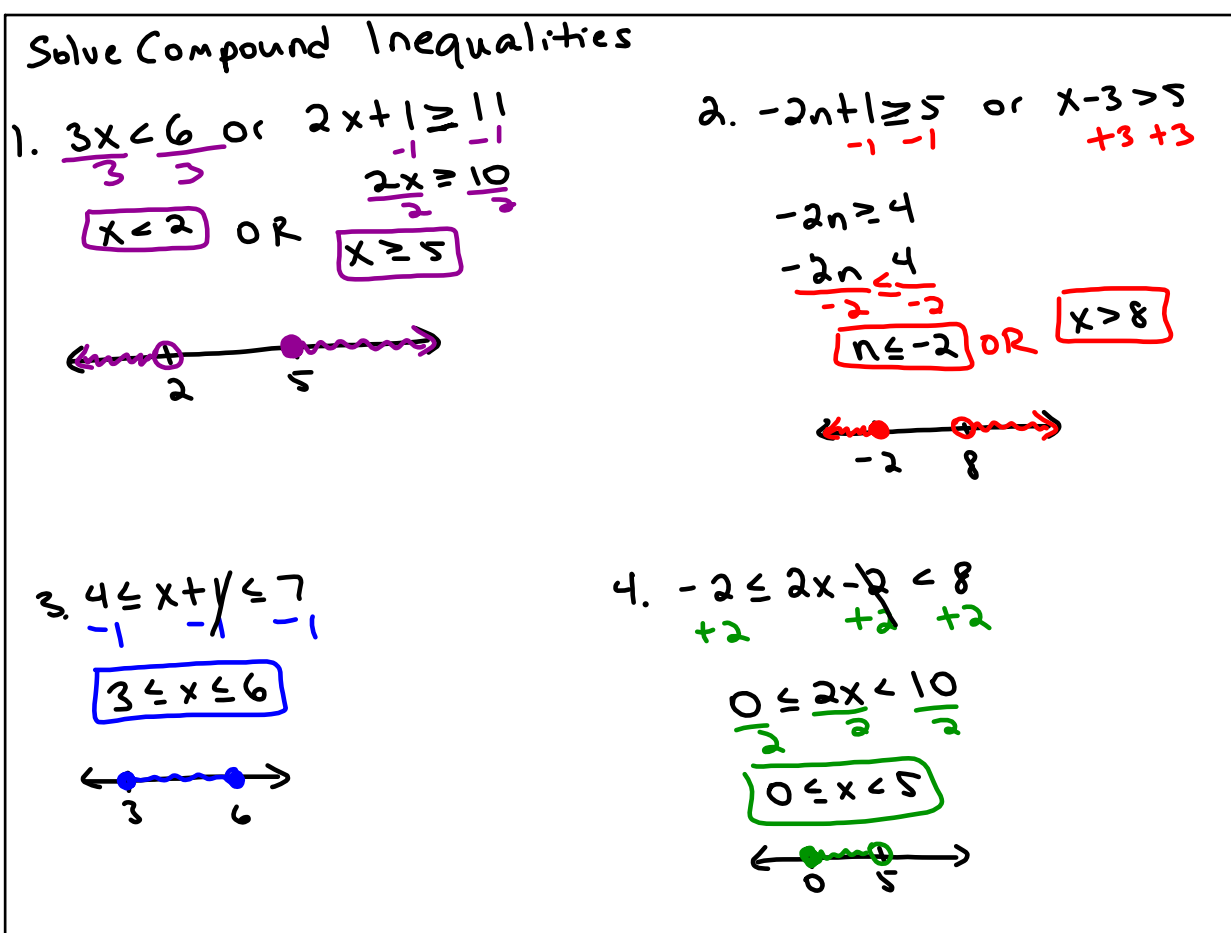 Solve Compound Inequalities
1. 3x < 6 or 2x+1 ≥ 11
3 3 -1 -1
2x ≥ 10
2 2
x < 2 OR x ≥ 5
2 5
2. -2n+1 ≥ 5 or x-3 > 5
-1 -1 +3 +3
-2n ≥ 4
-2n ≤ 4
-2 -2
n ≤ -2 OR x > 8
-2 8
3. 4 ≤ x+1 ≤ 7
-1 -1 -1
3 ≤ x ≤ 6
3 6
4. -2 ≤ 2x-2 < 8
+2 +2 +2
0 ≤ 2x < 10
2 2 2
0 ≤ x < 5
0 5